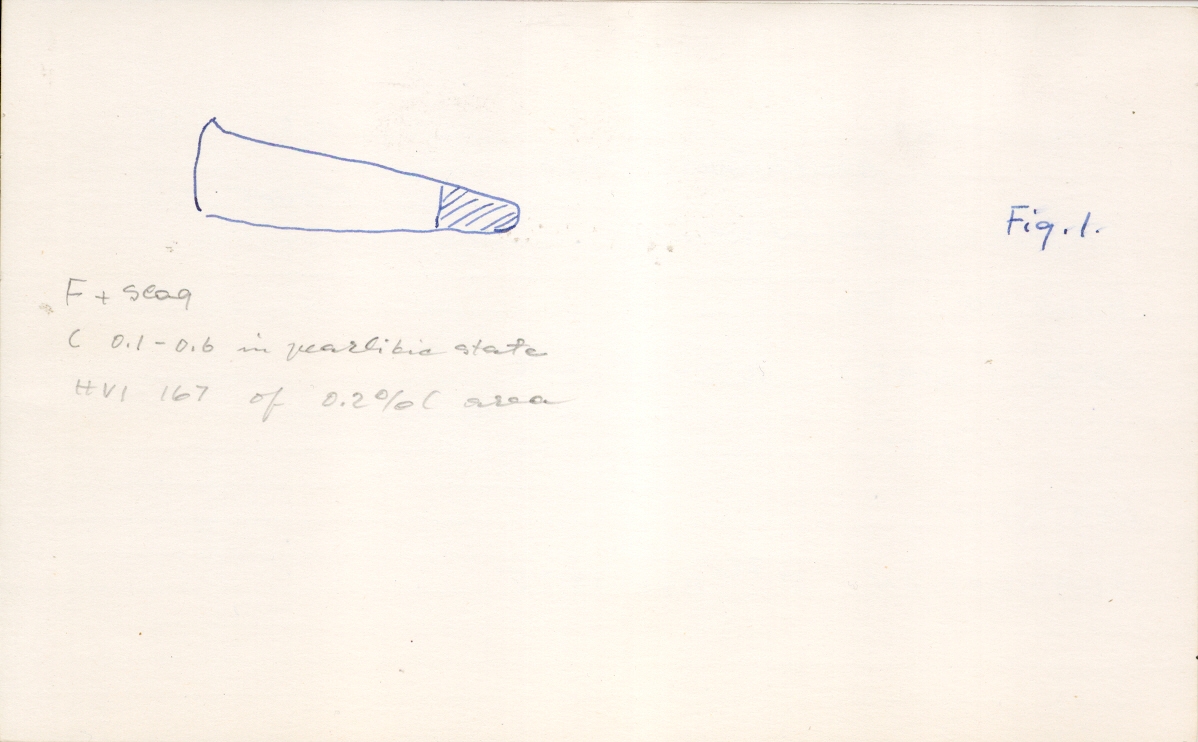 Fig. 1.
F + slag
C 0.1-0.6 in pearlitic state
HV1 167 of 0.2%C area